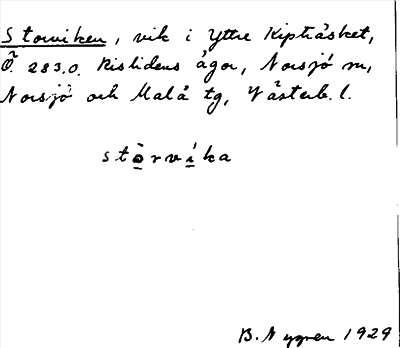 Storviken, vik i Yttre Kipträsket,
Ö. 283.0. Rislidens ägor, Norsjö sn,
Norsjö och Malå tg, Västerb. l.
stòrvíka
B. Nygren 1929